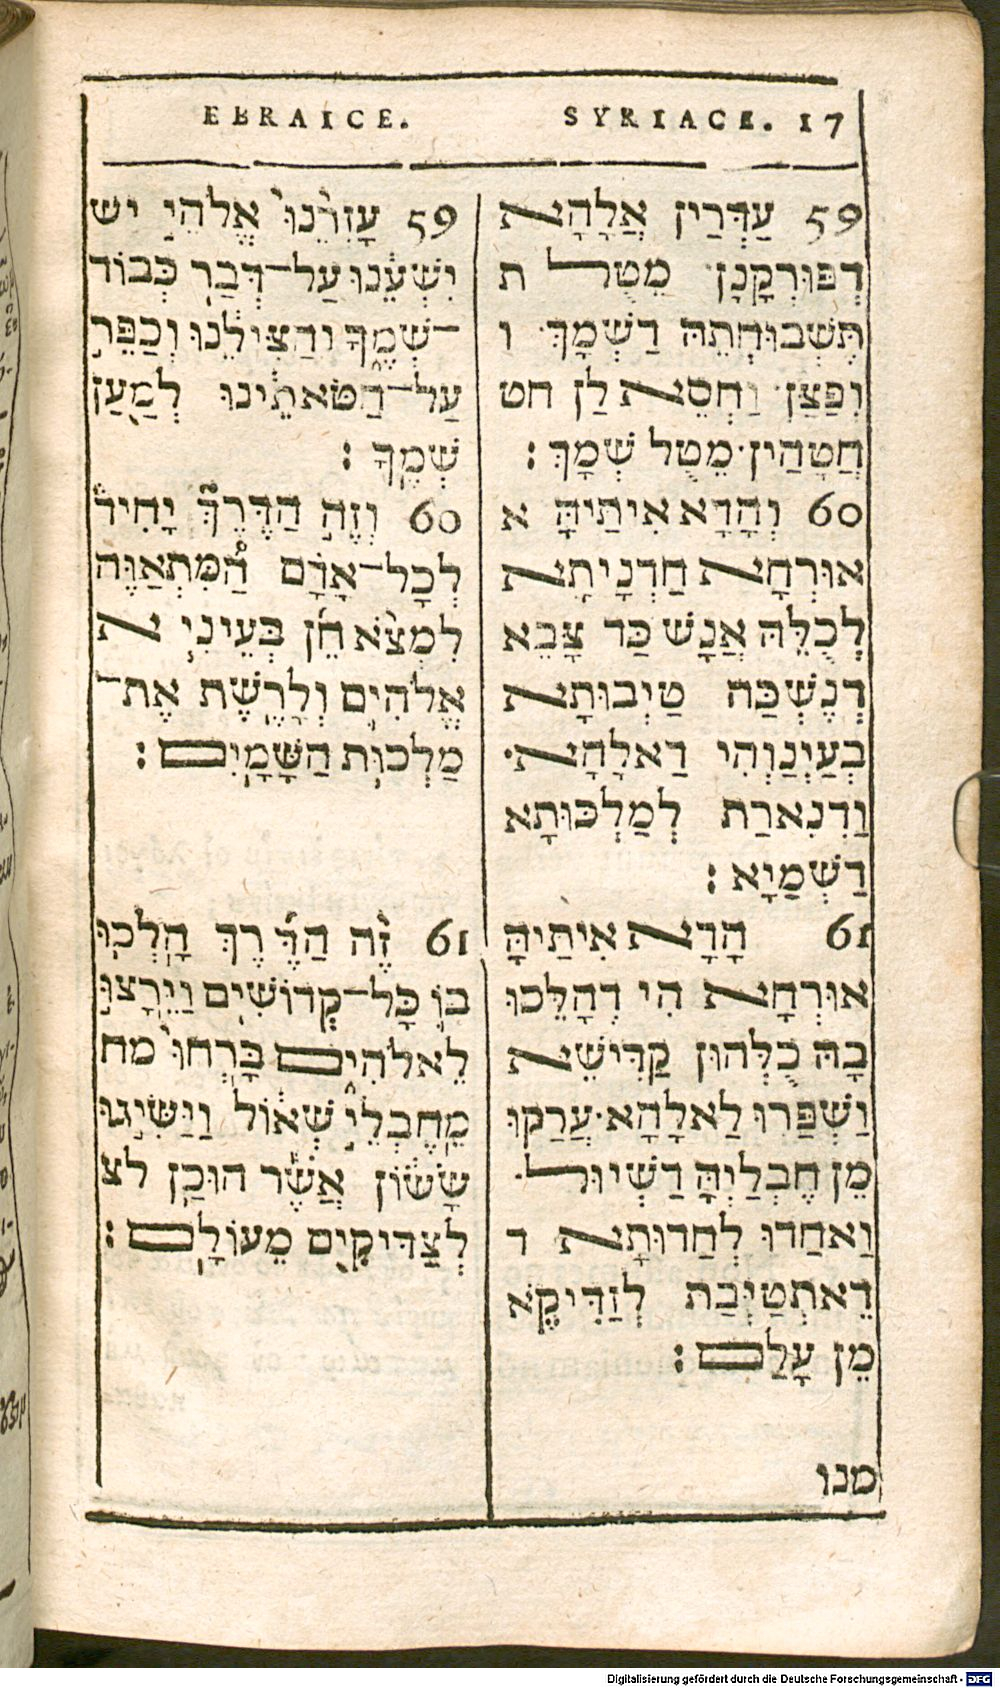 EBRAICE. SYRIACE. 17
59 עַדְּרַין אֲלָהָא
דְפּוּרְקָנָן מֵטֻל ת
תְּשְׁבּוּחְתֵהּ דַשְׁמָךְ ו
וְפַצָן וַחְסֵא לַן חט
חֲטָהַין מֵטֻל שְׁמָךְ :
60 וְהָדָא אִיתַיהָּ א
אוּרְחָא חַדְנָיתָא
לְכֻלֵּהּ אֲנָשׁ כַּד צָבֵא
דְנֶשְׁכַּח טַיְבוּתָא
בְעַיְנַוְהִי דַאלָהָא·
וַדְנִארַת לְמַלְכּוּתָא
דַשְׁמַיָא :
61 הָדָא אִיתַיהָּ
אוּרְחָא הִי דְהַלֵּכוּ
בָהּ כֻלְּהוּן קַדִּישֵׁא
וַשְׁפַּרוּ לַאלָהָא· עֲרַקוּ
מֵן חֶבְלַיְהָּ דַשְׁיוּל·
וַאחַדוּ לְחַדוּתָא ד
דֵאתְטַיְּבַת לְזַדִּיקֵא
מֵן עָלַם :
מנו
59 עָזְרֵנוּ אֱלֹהֵי יש
יִשְׁעֵנוּ עַל־דְּבַר כְּבוֹד
־שְׁמֶךָ וְהַצִּילֵנוּ וְכַפֵּר
עַל־חַטֹּאתֵינוּ לְמַעַן
שְׁמֶךָ :
60 וְזֶה הַדֶּרֶךְ יָחִיד
לְכָל־אָדָם הַמִּתְאַוֶּה
לִמְצֹא חֵן בְּעֵינֵי א
אֱלֹהִים וְלָרֶשֶׁת אֶת־
מַלְכוּת הַשָּׁמָיִם :
61 זֶה הַדֶּרֶךְ הָלְכוּ
בוֹ כָּל־קְדוֹשִׁים וַיֵּרָצוּ
לֵאלֹהִים בָּרְחוּ מח
מֵחֶבְלֵי שְׁאוֹל וַיַּשִּׂיגוּ
שָׂשׂוֹן אֲשֶׁר הוּכַן לצ
לְצַדִּיקִים מֵעוֹלָם :